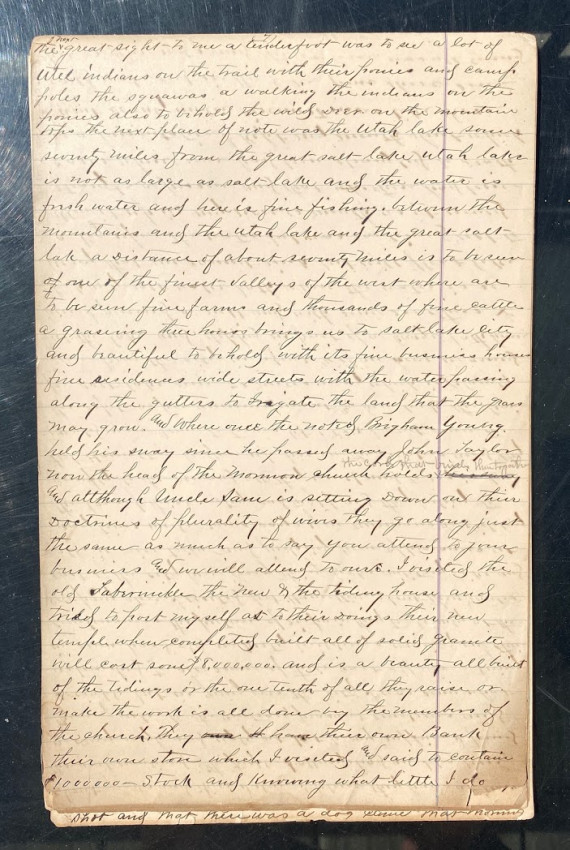 the next great sight to me a tenderfoot was to see a lot of
Utel indians on the trail with their ponies and camp
poles the squawas a walking the indians on the
ponies also to behold the wild deer on the mountain
tops the next place of note was the Utah lake some
seventy miles from the great salt lake Utah lake
is not as large as salt lake and the water is
fresh water and here is fine fishing. between the
mountains and the Utah lake and the great salt
lake a distance of about seventy miles is to be seen
of one of the finest valleys of the west where are
to be seen fine farms and thousands of fine cattle
a graseing three hours brings us to salt lake city
and beautiful to behold with its fine business houses
fine residences wide streets with the water passing
along the gutters to Irigate the land that the grass
may grow. and where once the noted Brigham Young
held his sway since he passed away John Taylor
now the head of the Mormon church holds
and although Uncle Sam is setting Down on their
Doctrines of plurality of wives they go along just
the same as much as to say you attend to your
business and we will attend to ours. I visited the
old Tabernickle the new & the tiding house and
tried to post myself as to their Doings their new
temple when completed built all of solid granite
will cost some $8,000,000. and is a beauty, all built
of the tidings or the one tenth of all they raise or
make the work is all done by the members of
the church, they have their own Bank
their own store which I visited and said to contain
$1000000— Stock and Knowing what little I do
shot and that there was a dog that morning